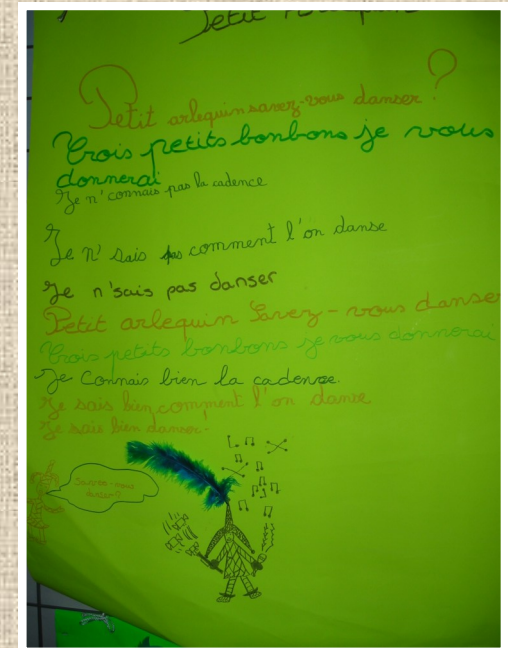 Petit
Petit arlequin savez-vous danser ?
Trois petits bonbons je vous
donnerai
Je n'connais pas la cadence
Je n'sais pas comment l'on danse
Je n'sais pas danser
Petit arlequin Savez-vous danse
Trois petits bonbons je vous donnerai
Je Connais bien la cadence.
Je sais bien comment l'on danse
Je sais bien danser.
Savez-vous
danser?